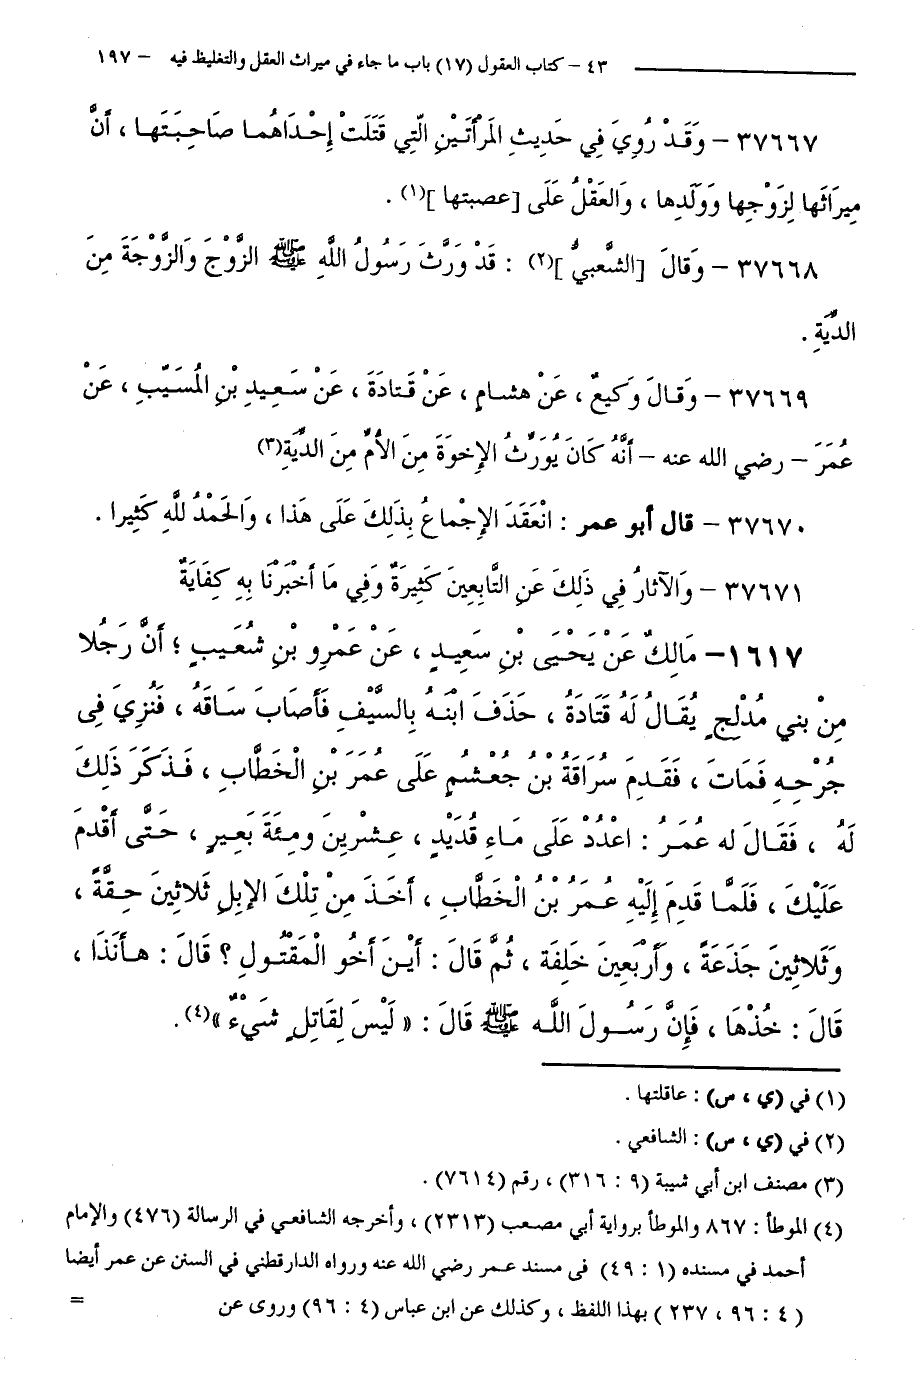 ٤٣ – كتاب العقول (١٧) باب ما جاء في ميراث العقل والتغليظ فيه – ١٩٧
٣٧٦٦٧ – وَقَدْ رُوِيَ فِي حَدِيثِ المَرْأَتَيْنِ الّتِي قَتَلَتْ إِحْدَاهُما صَاحِبَتَها ، أَنَّ
مِيرَاثَها لِزَوْجِها وَوَلَدِها ، وَالعَقْلُ عَلَى [عصبتها ](١) .
٣٧٦٦٨ – وَقالَ [الشَّعبيُّ ](٢) : قَدْ وَرَّثَ رَسُولُ اللَّهِ ﷺ الزَّوْجَ وَالزَّوْجَةَ مِنَ
الدِّيَةِ .
٣٧٦٦٩ – وَقالَ وَكيعٌ ، عَنْ هشامٍ ، عَنْ قَتادَةَ ، عَنْ سَعِيدِ بْنِ المُسَيَّبِ ، عَنْ
عُمَرَ – رضي الله عنه – أَنَّهُ كَانَ يُوَرِّثُ الإِخوَةَ مِنَ الأُمِّ مِنَ الدِّيَةِ(٣)
٣٧٦٧٠ – قال أبو عمر : انْعَقَدَ الإِجْماعُ بِذَلِكَ عَلَى هَذا ، وَالحَمْدُ للَّهِ كَثِيرا .
٣٧٦٧١ – وَالآثارُ فِي ذَلِكَ عَنِ التَّابِعِينَ كَثِيرَةٌ وَفِي مَا أخْبَرْنَا بِهِ كِفَايَةٌ
١٦١٧– مَالِكٌ عَنْ يَحْيَى بْنِ سَعِيدٍ ، عَنْ عَمْرِو بْنِ شُعَيبٍ ؛ أَنَّ رَجُلا
مِنْ بَنِي مُدْلِجٍ يُقَالُ لَهُ قَتَادَةُ ، حَذَفَ ابْنَهُ بِالسَّيْفِ فَأَصَابَ سَاقَهُ ، فَنُزِيَ فِى
جُرْحِهِ فَمَاتَ ، فَقَدِمَ سُرَاقَةُ بْنُ جُعْشُمٍ عَلَى عُمَرَ بْنِ الْخَطَّابِ ، فَذَكَرَ ذَلِكَ
لَهُ ، فَقَالَ له عُمَرُ : اعْدُدْ عَلَى مَاءِ قُدَيْدٍ ، عِشْرِينَ ومِئَةَ بَعِيرٍ ، حَتَّى أقْدمَ
عَلَيْكَ ، فَلَمَّا قَدِمَ إِلَيْهِ عُمَرُ بْنُ الْخَطَّابِ ، أَخَذَ مِنْ تِلْكَ الإِبلِ ثَلاثِينَ حِقَّةً ،
وَثَلاثِينَ جَذَعَةً ، وَأَرْبَعِينَ خَلِفَة ، ثُمَّ قَالَ : أيْنَ أَخُو الْمَقْتُولِ ؟ قَالَ : هأَنَذَا ،
قَالَ : خُذْهَا ، فَإِنَّ رَسُولَ اللَّه ﷺ قَالَ : « لَيْسَ لِقَاتِلٍ شَيْءٌ »(٤).
(١) في (ي ، س) : عاقلتها .
(٢) في (ي ، س) : الشافعي .
(٣) مصنف ابن أبي شيبة (٩ : ٣١٦) ، رقم (٧٦١٤) .
(٤) الموطأ : ٨٦٧ والموطأ برواية أبي مصعب (٢٣١٣) ، وأخرجه الشافعي في الرسالة (٤٧٦) والإمام
أحمد في مسنده (١ : ٤٩) فى مسند عمر رضي الله عنه ورواه الدارقطني في السنن عن عمر أيضا
(٤ : ٩٦ ، ٢٣٧ ) بهذا اللفظ ، وكذلك عن ابن عباس (٤ : ٩٦) وروى عن =